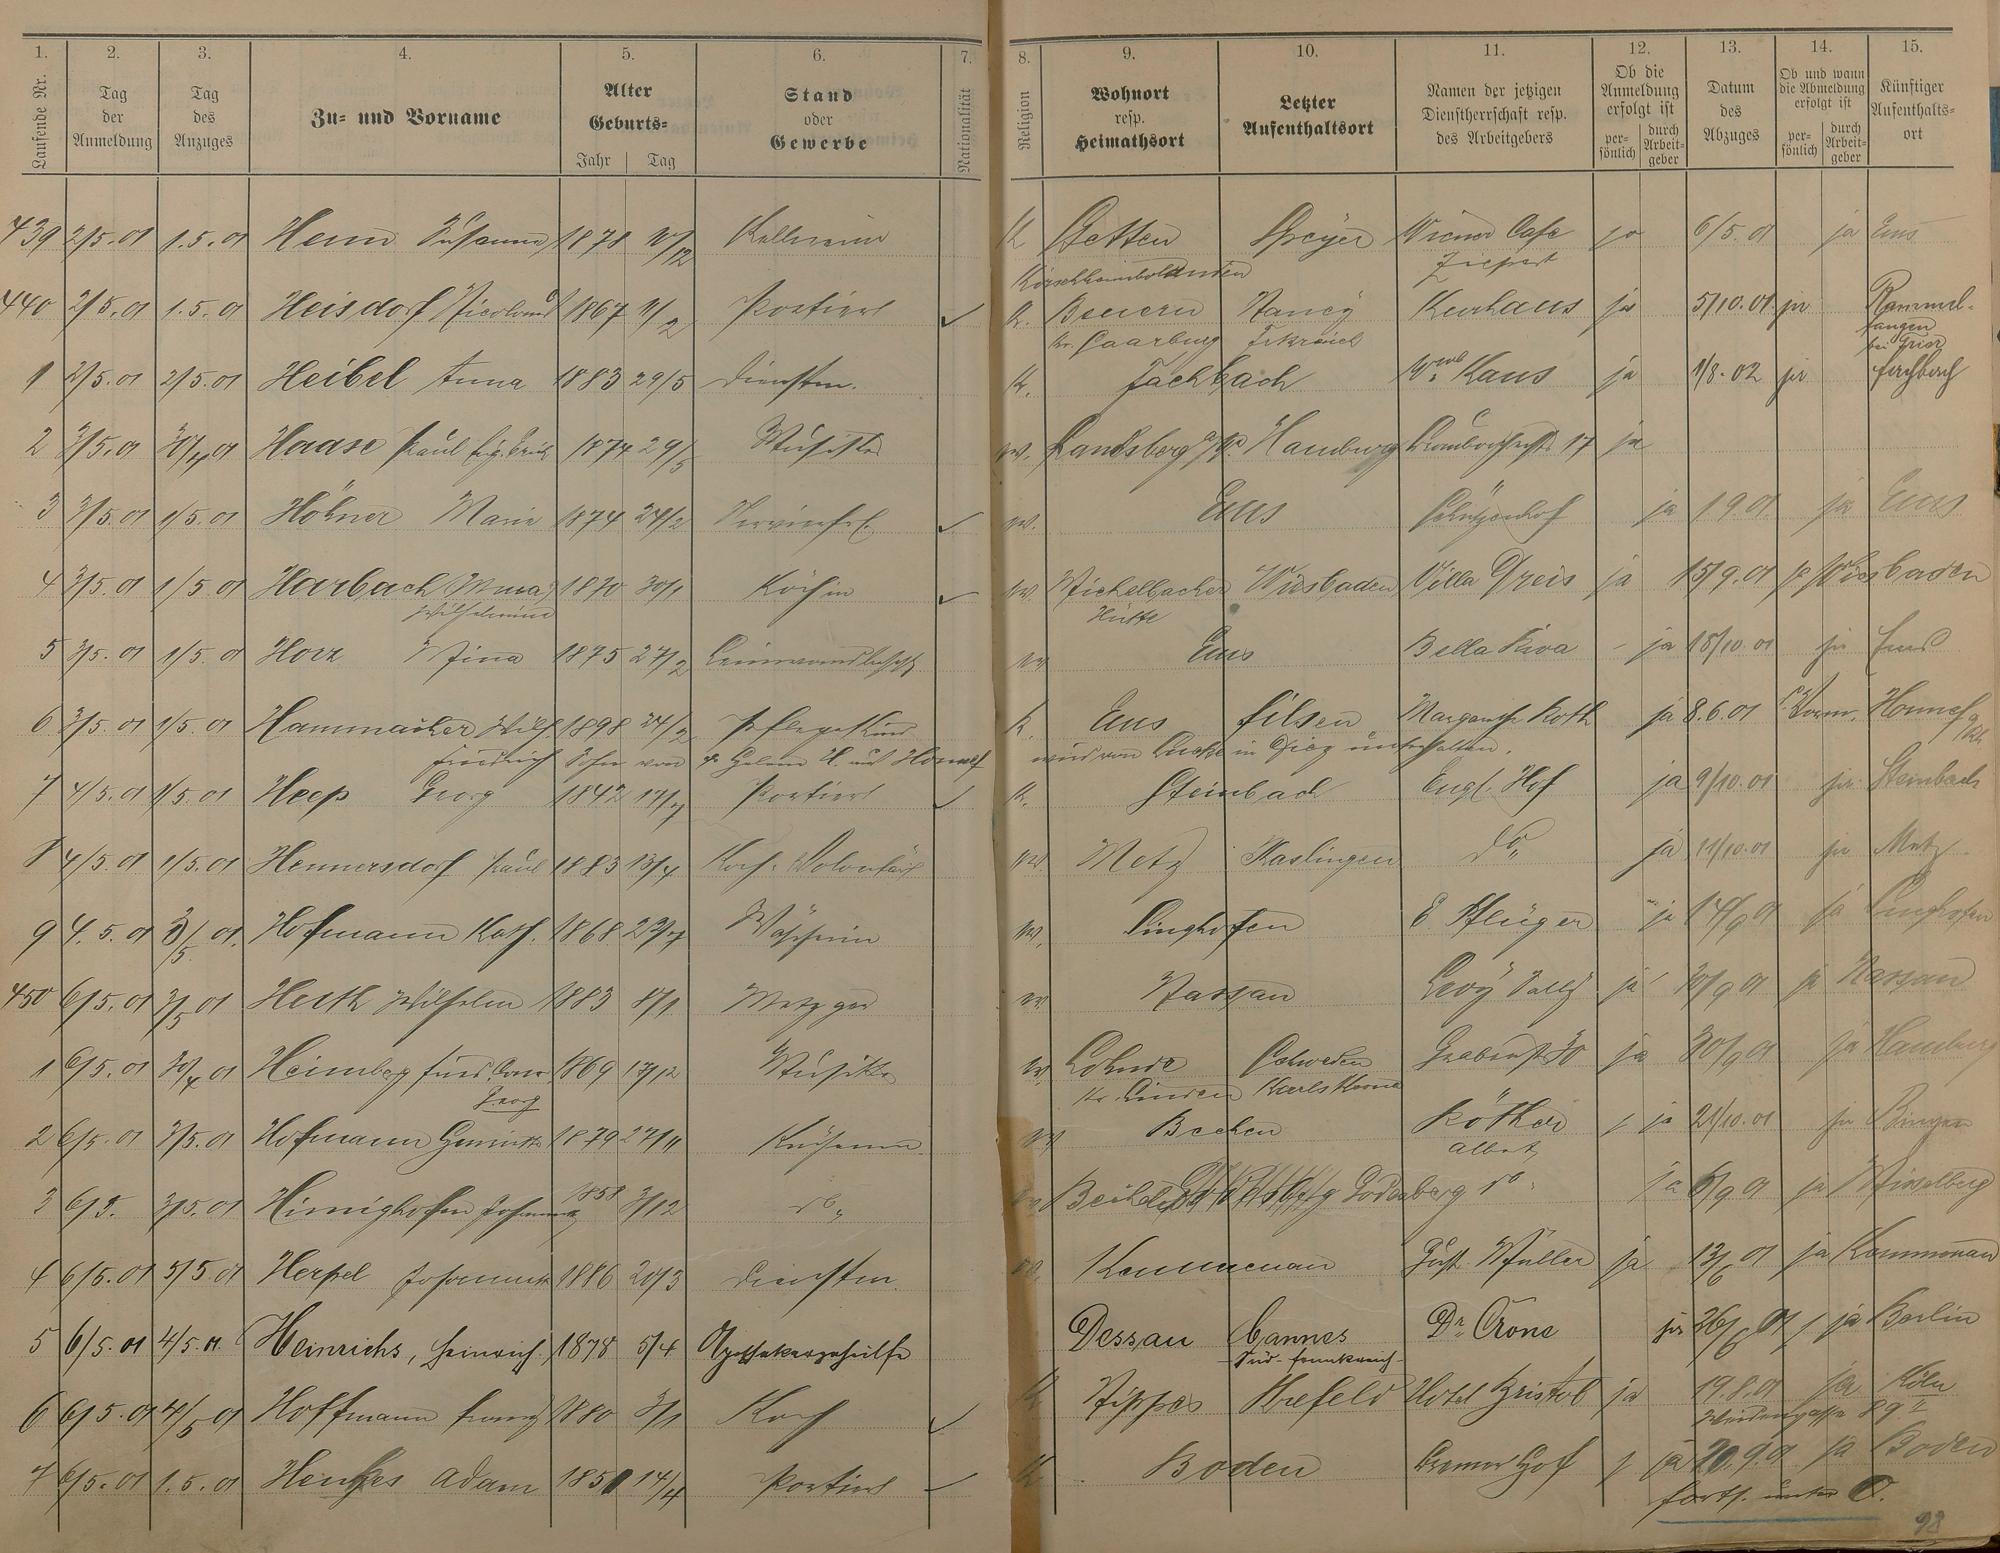 1. 2. 3. 4. 5. 6. 7. 8. 9. 10. 11. 12. 13. 14. 15.
Laufende Nr. Tag der Anmeldung Tag des Anzuges Zu- und Vorname Alter Geburts- Jahr Tag Stand oder Gewerbe Nationalität Religion Wohnort resp. Heimathsort Letzter Aufenthaltsort Namen der jetzigen Dienstherrschaft resp. des Arbeitgebers Ob die Anmeldung erfolgt ist per- sönlich durch Arbeit- geber Datum des Abzuges Ob und wann die Abmeldung erfolgt ist per- sönlich durch Arbeit- geber Künftiger Aufenthalts- ort
439 2/5.01 1.5.01 Henn Susanna 1878 /12 Kellnerin K Stetten Speyer Wiener Cafe ja 6/5.01 ja Ems
Kirchheimbolanden
440 2/5.01 1.5.01 Heisdorf 1867 /2 Portier K. Beuern Nancy Kurhaus ja 5/10.01 ja Rammel-
Kr. Saarburg Frkreich fangen
bei Trier
1 2/5.01 2/5.01 Heibel Anna 1883 29/5 Dienstm. K. Fachbach Wwe Kaus ja 1/8.02 ja Fachbach
2 3/5.01 30/4 01 Haase Paul 1874 29/5 Musiker ev. Landsberg a/W. Hamburg 17 ja
3 3/5.01 1/5.01 Höhner Marie 1874 24/2 Servierfrl. ev. Ems Schützenhof ja 1 9.01 ja Ems
4 3/5.01 1/5.01 Harbach Mina 1870 30/1 Köchin ev. Michelbacher Wiesbaden Villa Dreis ja 15/9.01 ja Wiesbaden
Wilhelmine Hütte
5 3/5.01 1/5.01 Horz Mina 1875 27/2 ev Ems Bella Riva - ja 15/10 01 ja Ems
6 3/5.01 1/5.01 Hammacher Wilh 1898 24/2 Pflegekind K. Ems Filsen Margarethe Roth ja 8.6.01 Honnef a/Rh
Friedrich Sohn von H. aus Honnef wird von in Diez unterhalten.
7 4/5.01 1/5.01 Heep Georg 1842 17/7 Portier K. Steinbach Engl. Hof ja 9/10.01 ja Steinbach
8 4/5.01 1/5.01 Hennersdorf Paul 1883 13/4 Koch-Volontär ev. Metz Haslingen do ja 11/10.01 ja Metz
9 4.5.01 3/5 01. Hofmann Kath. 1868 23/7 Wäscherin ev. Singhofen E. Pflüger ja 14/9 01 ja Singhofen
450 6/5.01 3/5 01 Herth Wilhelm 1883 8/1 Metzger ev Nassau ja 30/9 01 ja Nassau
1 6/5.01 30/4 01 Heimberg 1869 17/12 Musiker ev. Lohnde Schweden Grabenstr 30 ja 30/9 01 ja Hamburg
Georg Kr. Linden Karlskrona
2 6/5.01 3/5.01 Hofmann 1879 27/11 ev Becheln Röther / ja 21/10.01 ja Bingen
Albert
3 6/5. 3/5.01 1858 3/12 do ev Godesberg do ja 6/9 01 ja
4 6/5.01 5/5.01 Herpel Johannette 1886 20/3 Dienstm. ev. Kemmenau Gust. Müller ja 13/6 01 ja Kemmenau
5 6/5.01 4/5.01. Heinrichs, Heinrich. 1878 5/4 Apothekergehilfe Dessau Cannes Dr. Crone ja 26/6 01 / ja Berlin
Süd-frankreich
6 6/5.01 4/5 01 Hoffmann Franz 1880 3/1 Koch K Nippes Krefeld Hotel Bristol ja 19.8.01 ja Köln
Weidengasse 89 II
7 6/5.01 1.5.01 Henkes Adam 1851 14/4 Portier K Boden Bremer Hof / ja 20.9.01 ja Boden
forts. unter O.
98